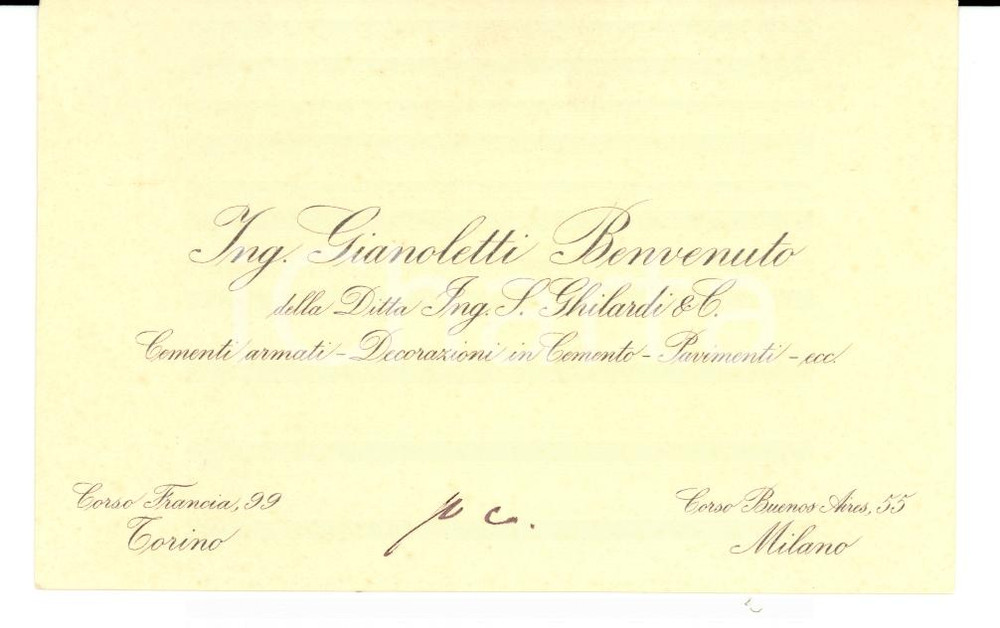 Ing. Gianoletti Benvenuto
della Ditta Ing. S. Ghilardi & C.
Cementi armati - Decorazioni in Cemento - Pavimenti - ecc.
Corso Francia, 99
Torino
p c.
Corso Buenos Aires, 55
Milano